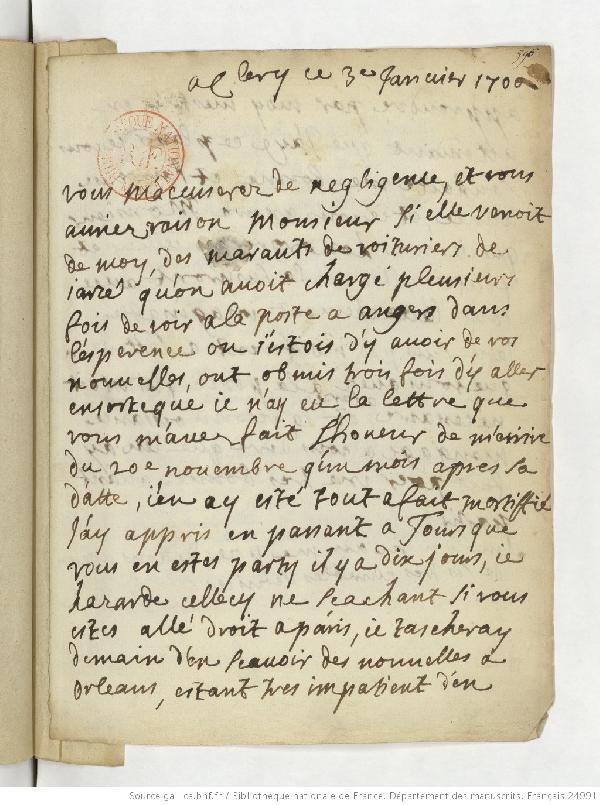 a Clery ce 3e Janvier 1700
vous m'accuserez de negligence, et vous
auriez raison Monsieur si elle venoit
de moy, des marauts de voituriers de
iarzé qu'on avoit chargé pleusieurs
fois de voir a la poste a angers dans
l'esperence ou i'estois d'y avoir de vos
nouvelles, ont obmis trois fois d'y aller
ensorte que ie n'ay eu la lettre que
vous m'avez fait l'honeur de m'ecrire
du 20e novembre qu'un mois apres sa
datte, i'en ay esté tout a fait mortiffié
J'ay appris en passant a Tours que
vous en estes party il y a dix jours, ie
hazarde cellecy ne scachant si vous
estes allé droit a paris, ie tascheray
demain d'en scavoir des nouvelles a
orleans, estant tres impatient d'en
Source gallica.bnf.fr / Bibliothèque nationale de France. Département des manuscrits. Français 24991